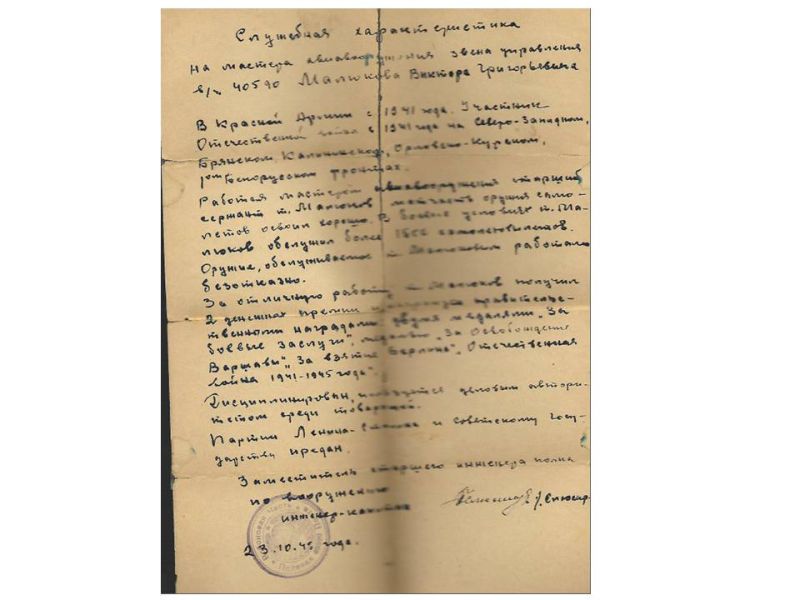 Служебная характеристика
На мастера авиавооружения звена управления
в/ч 40590 Малюкова Виктора Григорьевича
В Красной Армии с 1941 года. Участник
Отечественной войны с 1941 года на Северо-Западном,
Брянском, Калининском, Орловско-Курском,
Белорусском фронтах.
Работая мастером авиавооружения старший
сержант т. Малюков матчасть оружия само-
летов освоил хорошо. В боевых условиях т. Ма-
люков обслужил более самолетовылетов.
Оружие, обслуживаемое т. Малюковым работало
безотказно.
За отличную работу т. Малюков получил
2 денежных премии и правительс-
твенными наградами: двумя медалями "За
боевые заслуги", медалью "За Освобождение
Варшавы", "За взятие Берлина", "Отечественная
война 1941-1945 года".
Дисциплинирован, пользуется деловым автори-
тетом среди товарищей.
Партии Ленина-Сталина и Советскому госу-
дарству предан.
Заместитель старшего инженера полка
по вооружению
инженер-капитан
23.10.45 года.